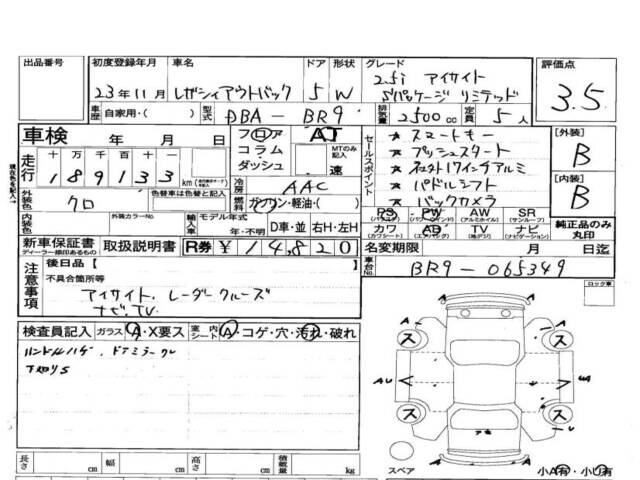 出品番号 初度登録年月 車名 ドア 形状 グレード 評価点
23年11月 レガシィアウトバック 5 W 2.5i アイサイト Sパッケージ リミテッド 3.5
車歴 自家用・( ) 型式 DBA-BR9 排気量 2500cc 定員 5人
車検 年 月 日 フロア AT
コラム MTのみ記入
ダッシュ 速
走行 十万千百十一 189133 km
現在色を記入
冷房 AAC
外装色 クロ 色替車は色替と記入 燃料 ガソリン・軽油・( )
内装色 外装カラーNo. 輸入車 モデル年式 年・不明 D車・並 右H・左H
新車保証書 ディーラー捺印あるもの 取扱説明書 R券 ¥14,820
セールスポイント
★ スマートキー
★ プッシュスタート
★ 17インチアルミ
★ パドルシフト
★ バックカメラ
[外装] B
[内装] B
PS (パワステ) PW (パワーウインド) AW (アルミホイル) SR (サンルーフ)
カワ (カワシート) AB (エアバッグ) TV (地デジ) ナビ (ナビゲーション)
純正品のみ丸印
名変期限 月 日迄
車台No. BR9-065349
注意事項 後日品[ ]
不具合箇所等
アイサイト. レーダークルーズ
ナビ. TV.
ロック車
検査員記入 ガラス A・X要ス 室内シート A・コゲ・穴・汚れ・破れ
ハンドルハゲ. ドアミラー
下回りS
ス ス
AU
ス ス
アモ
長さ cm 幅 cm 高さ cm 積載量 kg
スペア 小A有・小U有